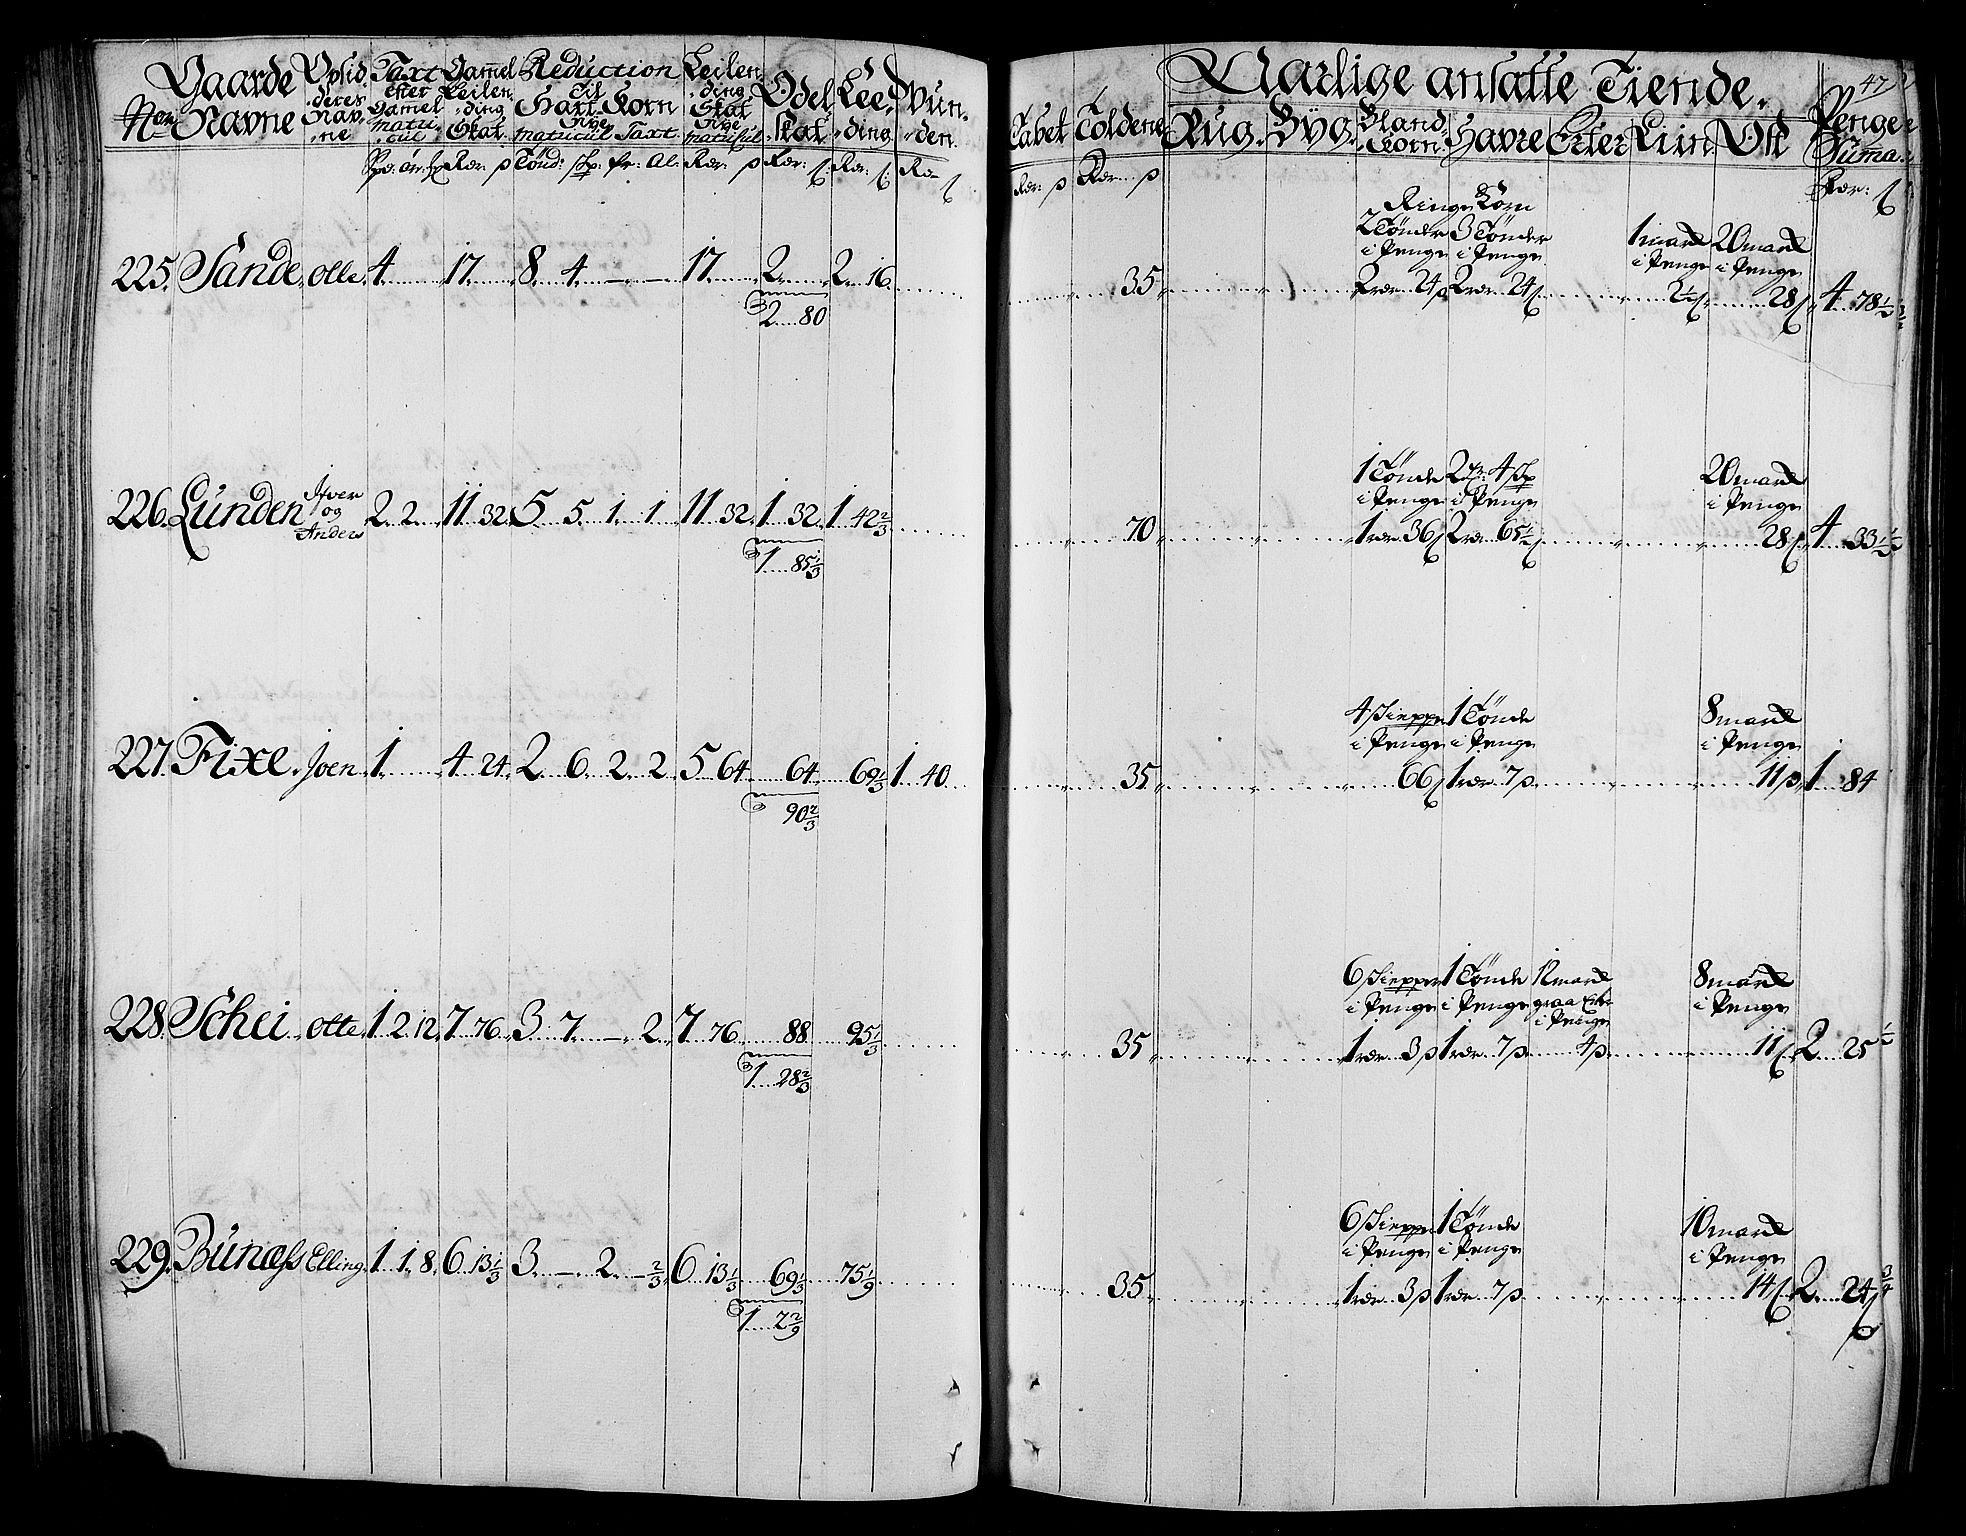 Gaarde Opsid Taxt Gamel Reduction Leilen Odel Lee Wun
Nor Navne deres Nav ne efter Gamel matri cul Leilen ding Skat Til Hart Korn Nye matricul Taxt ding Skat Nye matricul Skat ding den
Rdr: ß Tønd: Sp: fr: Al: Rdr: ß Rdr: ß Rdr: ß Rdr
225. Sande Olle 4 17 8 4 — — 17 2 2 16
2 80
226. Lunden Iver og Anders 2 2 11 32 5 5 1 1 11 32 1 32 1 42 2/3
1 85 1/3
227. Fixe Joen 1 4 24 2 6 2 2 5 64 64 69 1/3 1 40
90 2/3
228. Schei Otte 1 2 12 7 76 3 7 — 2 7 76 88 95 1/3
1 28 2/3
229. Bunæss Elling 1 1 8 6 13 1/3 3 — 2 — 2/3 6 13 1/3 69 1/3 75 1/9
1 2 2/9
Aarlige ansatte Tiende.
47
Tabet Toldene Rug. Byg. Bland Korn Havre Erter Liin Ost Penge Suma
Rdr: ß Rdr: ß Rdr: ß
Ringe Korn
2 Tønder 3 Tønder 1 mark 20 mark
i Penge i Penge i Penge i Penge
35 2 rdr 24 ß 2 rdr 24 ß 2 1/2 ß 28 ß 4 78 1/2
1 Tønde 2 Tr: 4 Sp 20 mark
i Penge i Penge i Penge
70 1 rdr 36 ß 2 rdr 65 1/2 ß 28 ß 4 33 1/2
4 Skiepper 1 Tønde 8 mark
i Penge i Penge i Penge
35 66 ß 1 rdr 7 ß 11 ß 1 84
6 Skiepper 1 Tønde 12 mark 8 mark
i Penge i Penge graa Erter i Penge i Penge
35 1 rdr 3 ß 1 rdr 7 ß 4 ß 11 ß 2 25 1/2
6 Skiepper 1 Tønde 10 mark
i Penge i Penge i Penge
35 1 rdr 3 ß 1 rdr 7 ß 14 ß 2 24 3/4